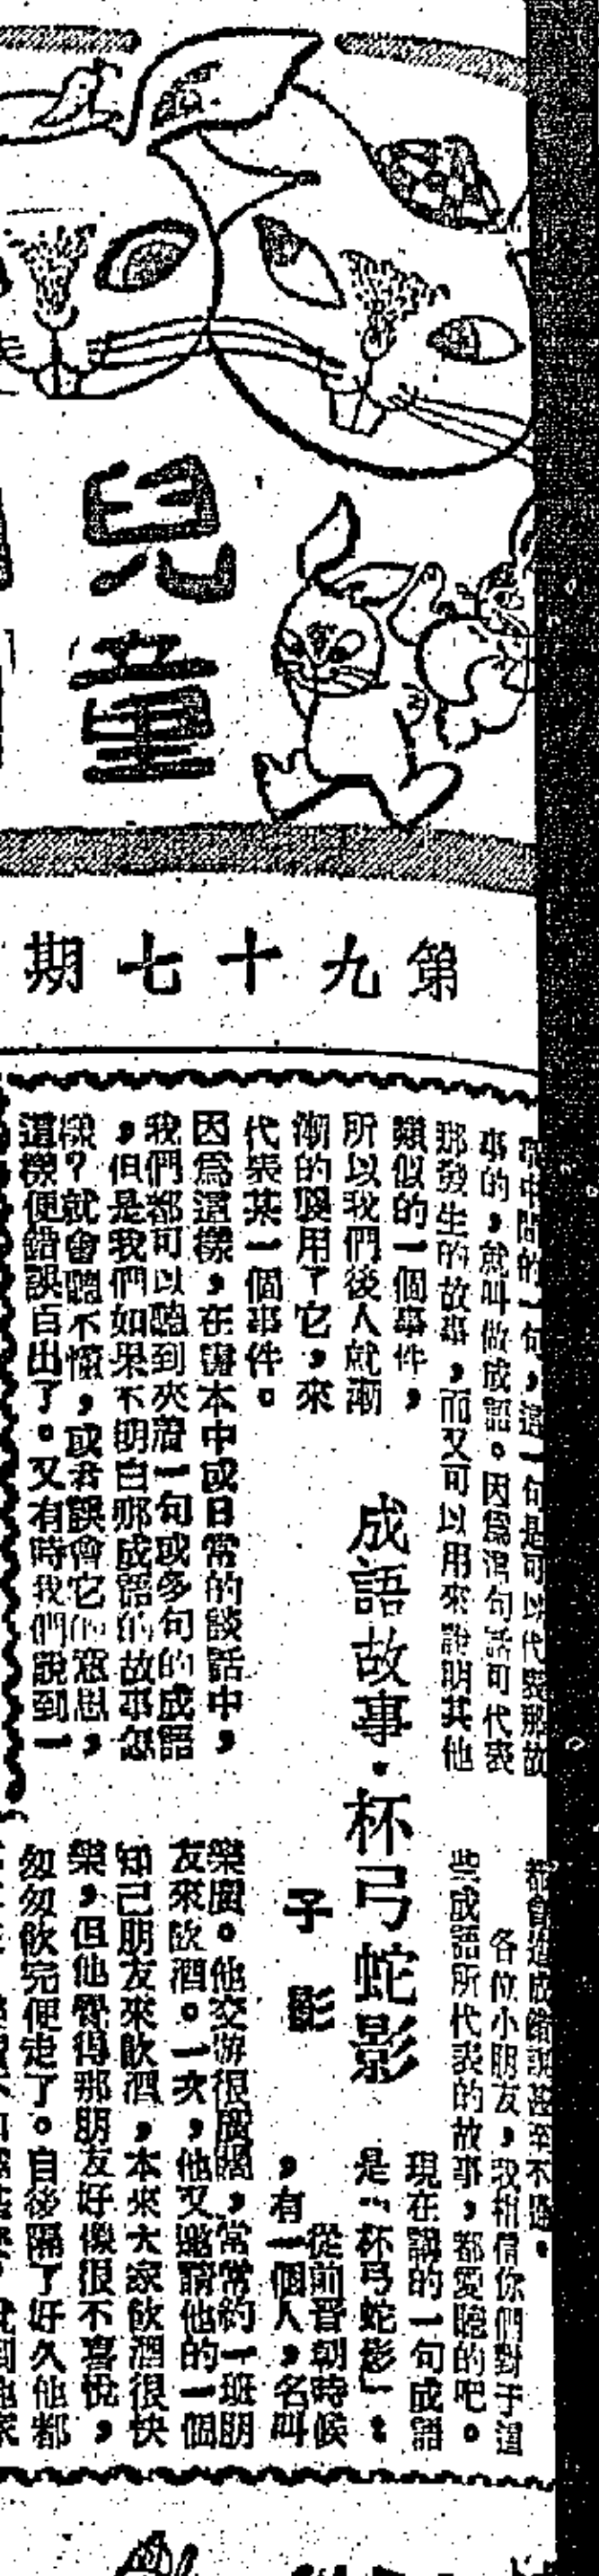 兒童
第九十七期
成語故事·杯弓蛇影
子影
中間的一句，這一句是可以代表那故
事的，就叫做成語。因爲這句話可代表
那發生的故事，而又可以用來說明其他
類似的一個事件，
所以我們後人就漸
漸的襲用了它，來
代表某一個事件。
因爲這樣，在書本中或日常的談話中，
我們都可以聽到夾着一句或多句的成語
，但是我們如果不明白那成語的故事怎
樣？就會聽不懂，或者誤會它的意思，
這樣便錯誤百出了。又有時我們說到一
都會造成錯誤甚至不通。
各位小朋友，我相信你們對于這
些成語所代表的故事，都愛聽的吧。
現在講的一句成語
是「杯弓蛇影」：
從前晉朝時候
，有一個人，名叫
樂廣。他交游很廣闊，常常約一班朋
友來飲酒。一次，他又邀請他的一個
知己朋友來飲酒，本來大家飲酒很快
樂，但他覺得那朋友好像很不喜悅，
匆匆飲完便走了。自後隔了好久他都